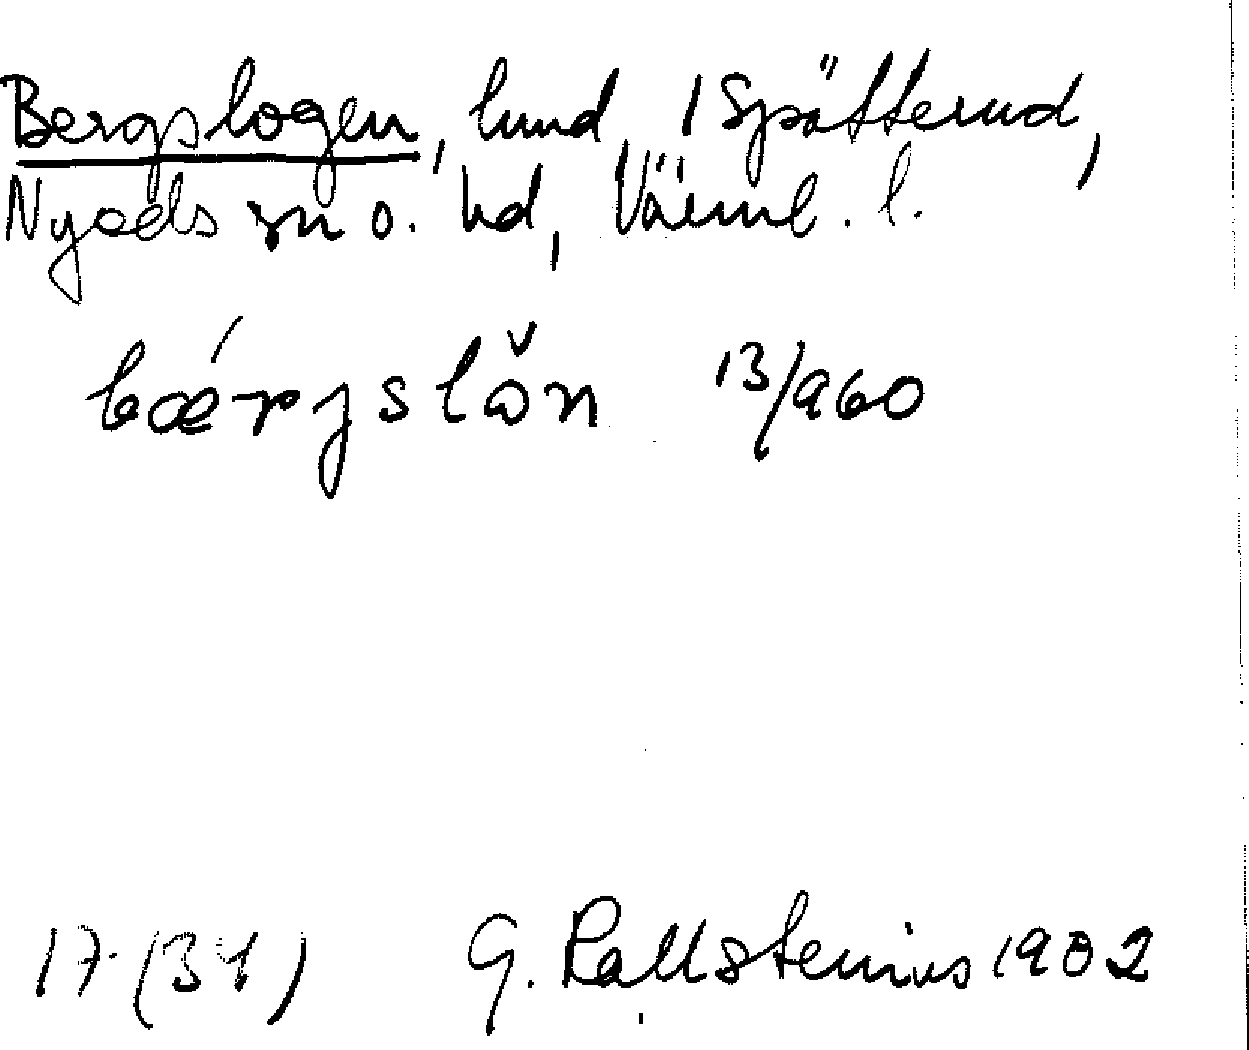 Bergslogen, lund, i Spätterud,
Nyeds sn o. hd, Värml. l.
bæ´rjslån 13/960
17 (31) G. Kallstenius 1902